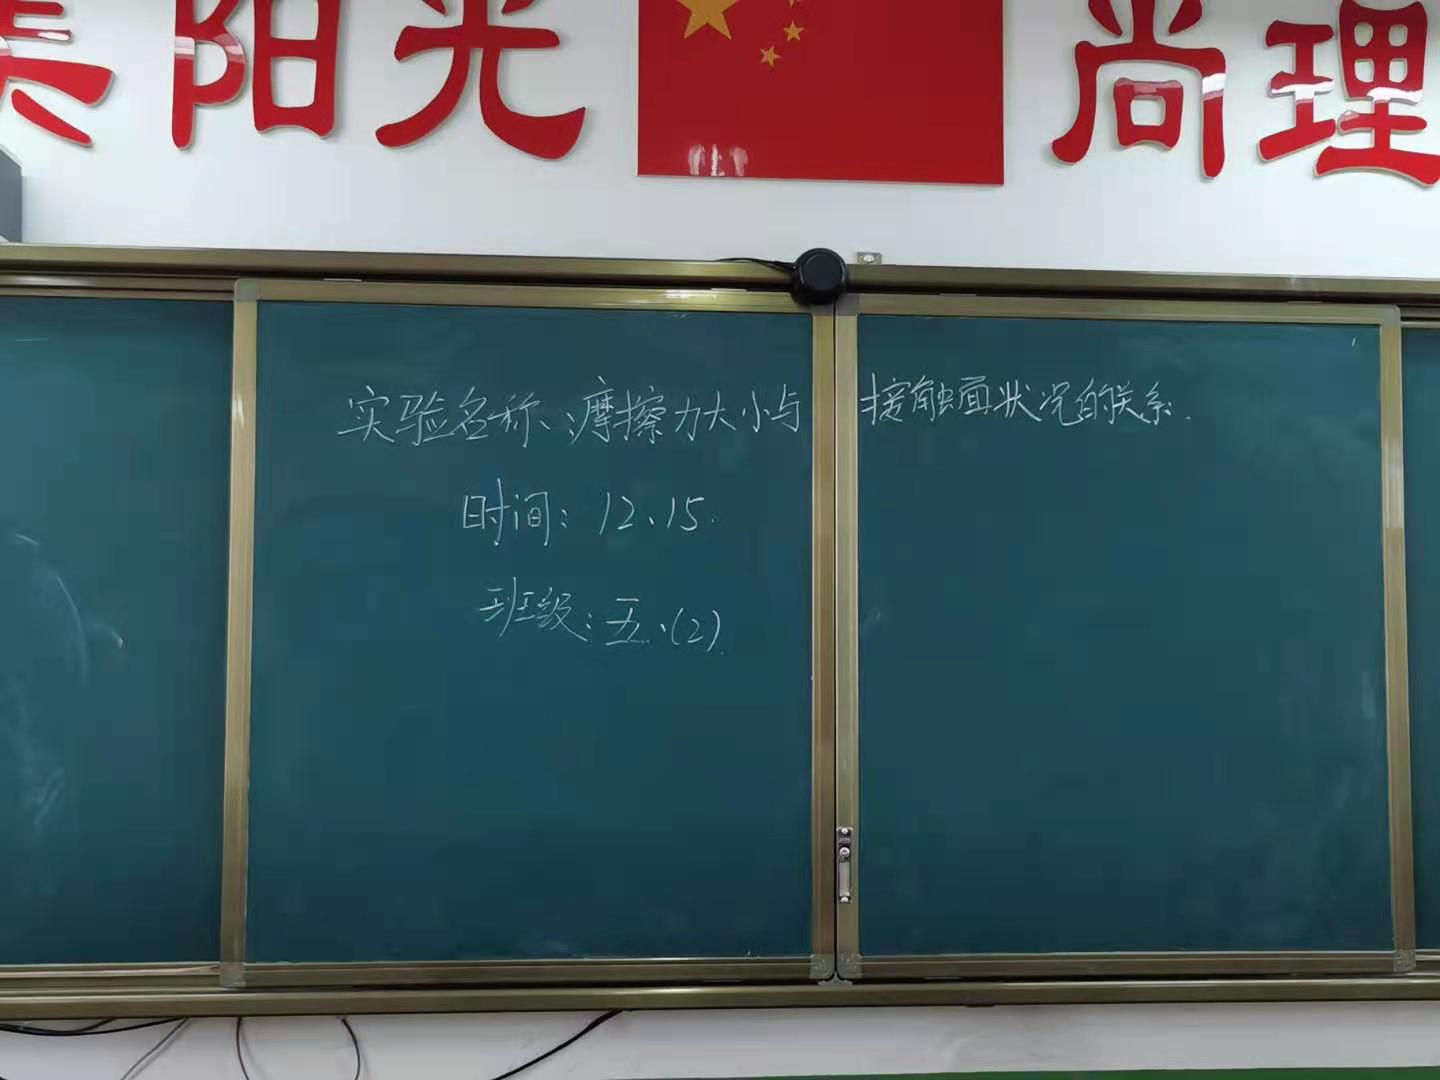 美阳光 尚理
实验名称:摩擦力大小与接触面状况的关系.
时间:12、15.
班级:五、(2)